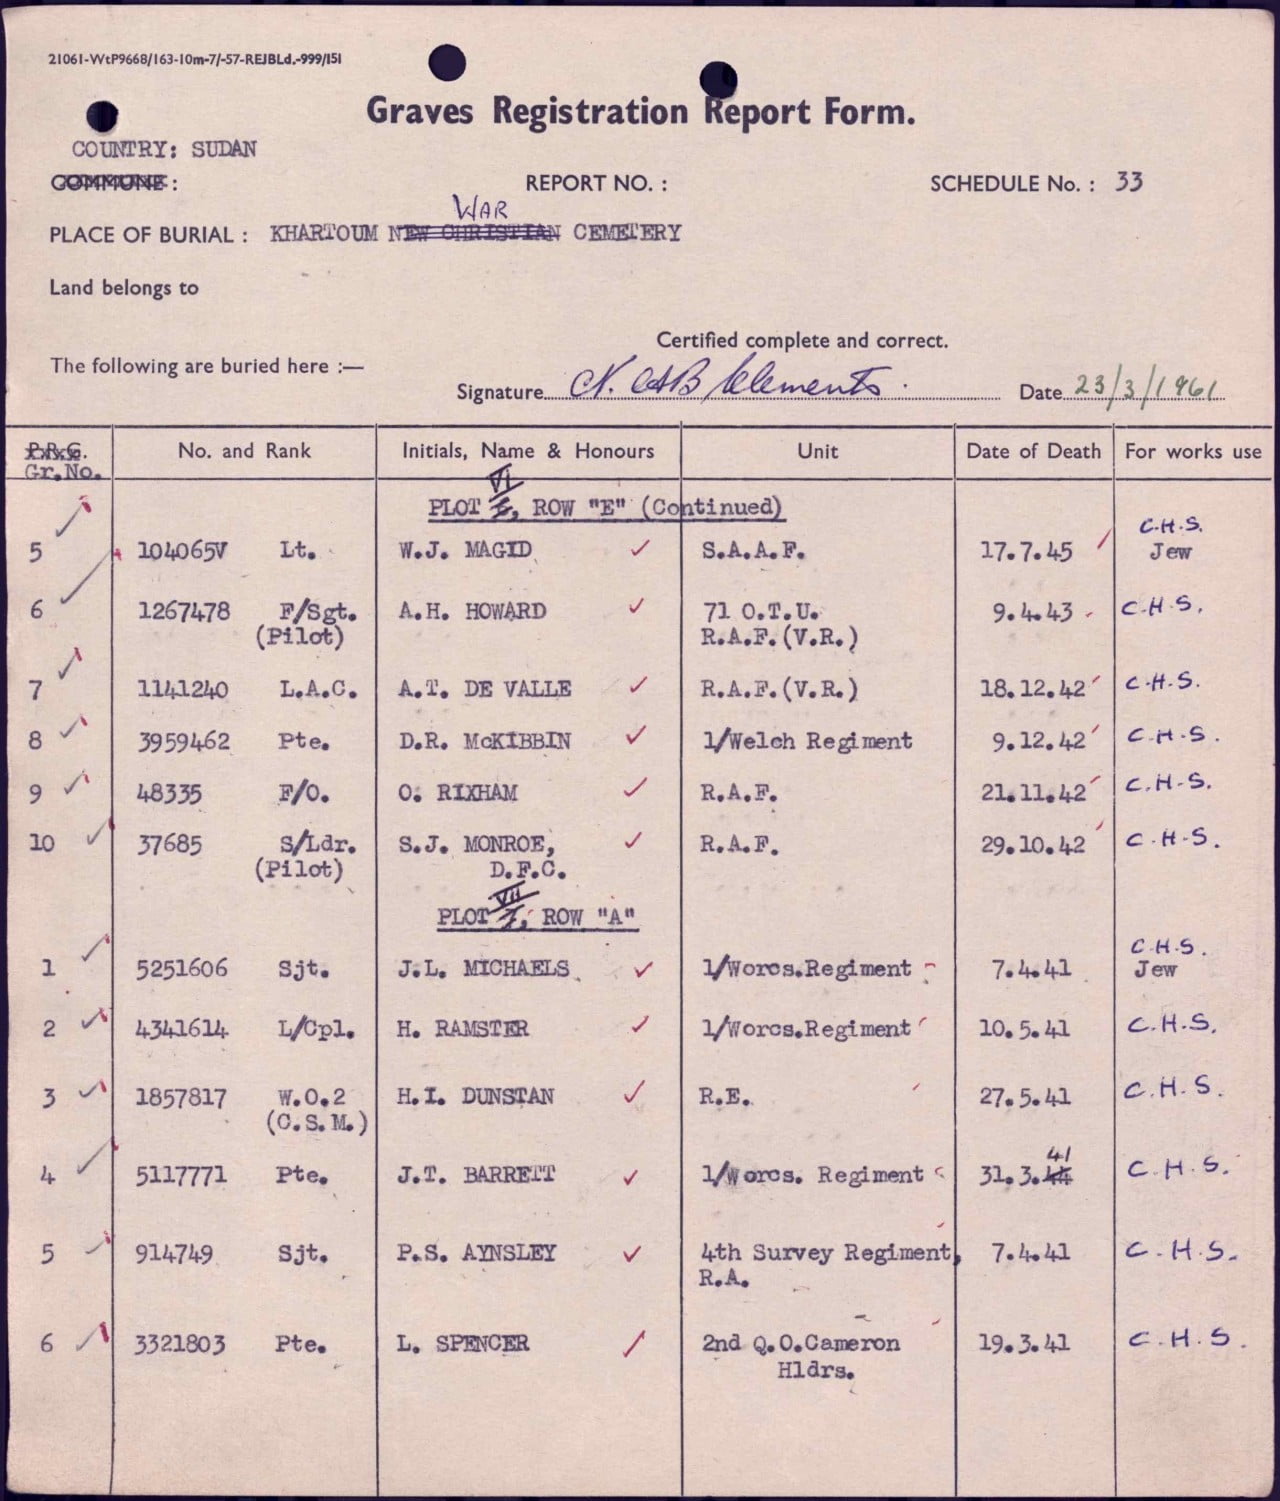 21061-WtP9668/163-10m-7/-57-REJBLd.-999/151
Graves Registration Report Form.
COUNTRY: SUDAN
COMMUNE : REPORT NO. : SCHEDULE No. : 33
WAR
PLACE OF BURIAL : KHARTOUM NEW CHRISTIAN CEMETERY
Land belongs to
Certified complete and correct.
The following are buried here :—
Signature Clements. Date 23/3/1961
Gr.No. No. and Rank Initials, Name & Honours Unit Date of Death For works use
VI
PLOT , ROW "E" (Continued)
C.H.S.
5 104065V Lt. W.J. MAGID S.A.A.F. 17.7.45 Jew
6 1267478 F/Sgt. A.H. HOWARD 71 O.T.U. 9.4.43 C.H.S.
(Pilot) R.A.F.(V.R.)
7 1141240 L.A.C. A.T. DE VALLE R.A.F.(V.R.) 18.12.42 C.H.S.
8 3959462 Pte. D.R. McKIBBIN 1/Welch Regiment 9.12.42 C.H.S.
9 48335 F/O. O. RIXHAM R.A.F. 21.11.42 C.H.S.
10 37685 S/Ldr. S.J. MONROE, R.A.F. 29.10.42 C.H.S.
(Pilot) D.F.C.
VII
PLOT , ROW "A"
C.H.S.
1 5251606 Sjt. J.L. MICHAELS 1/Worcs.Regiment 7.4.41 Jew
2 4341614 L/Cpl. H. RAMSTER 1/Worcs.Regiment 10.5.41 C.H.S.
3 1857817 W.O.2 H.I. DUNSTAN R.E. 27.5.41 C.H.S.
(C.S.M.)
41
4 5117771 Pte. J.T. BARRETT 1/Worcs. Regiment 31.3.44 C.H.S.
5 914749 Sjt. P.S. AYNSLEY 4th Survey Regiment, 7.4.41 C.H.S.
R.A.
6 3321803 Pte. L. SPENCER 2nd Q.O.Cameron 19.3.41 C.H.S.
Hldrs.